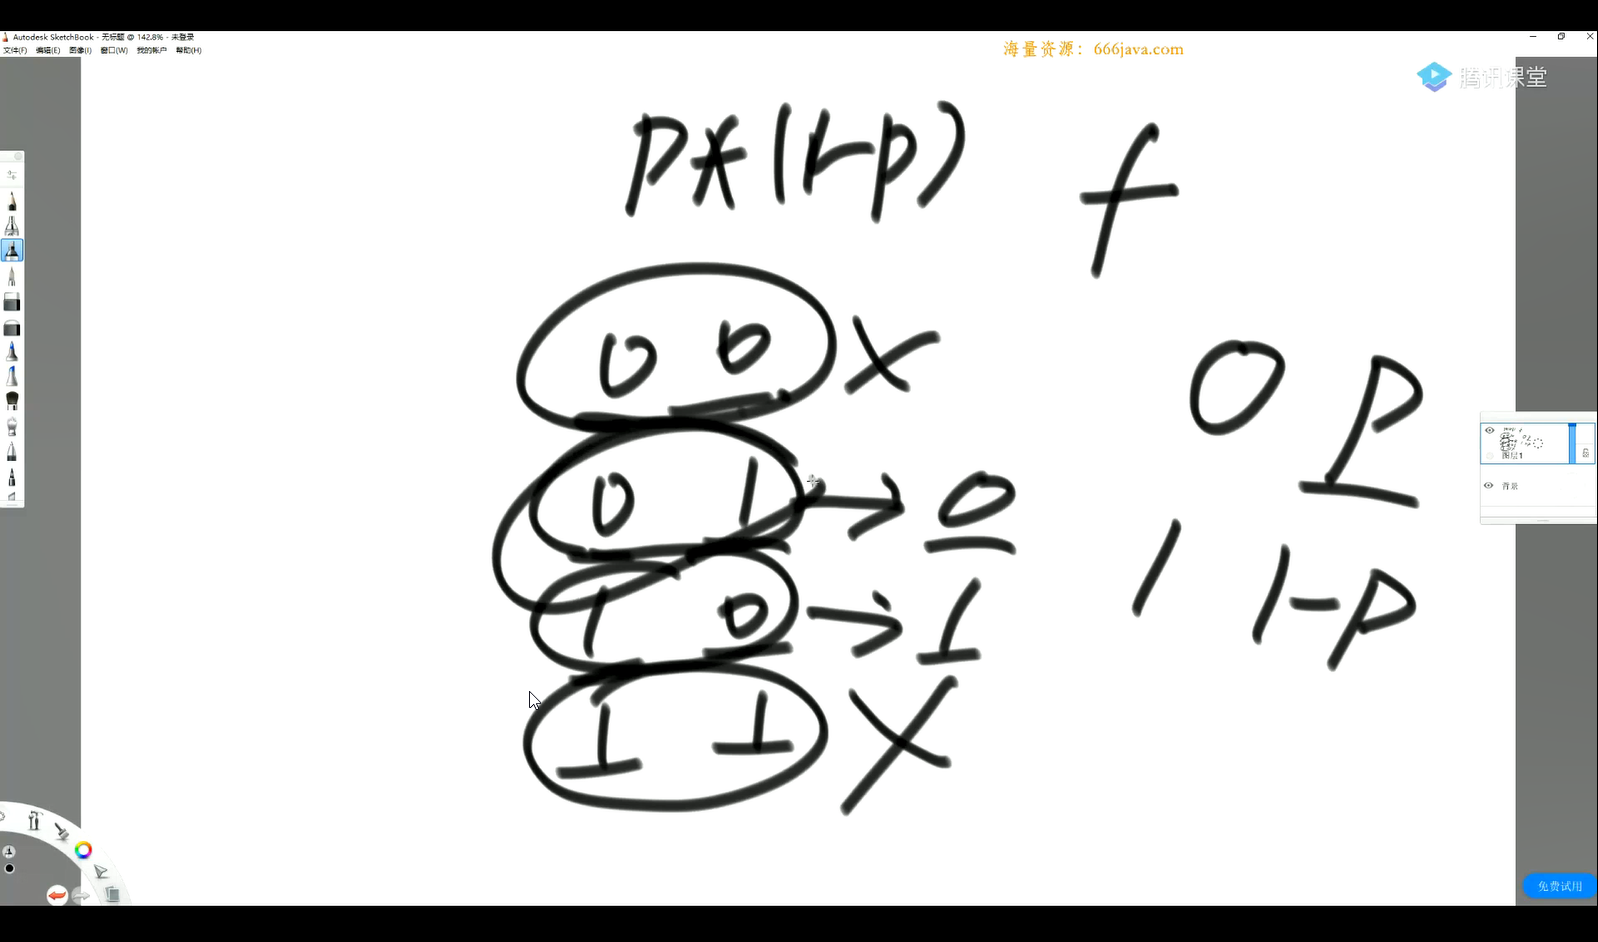 Autodesk SketchBook - 无标题 @ 142.8% - 未登录
文件(F) 编辑(E) 图像(I) 窗口(W) 我的帐户 帮助(H)
海量资源：666java.com
腾讯课堂
P*(1-P) f
0 0 X
0 P
0 1 → 0
1 1-P
1 0 → 1
1 1 X
图层1
背景
免费试用